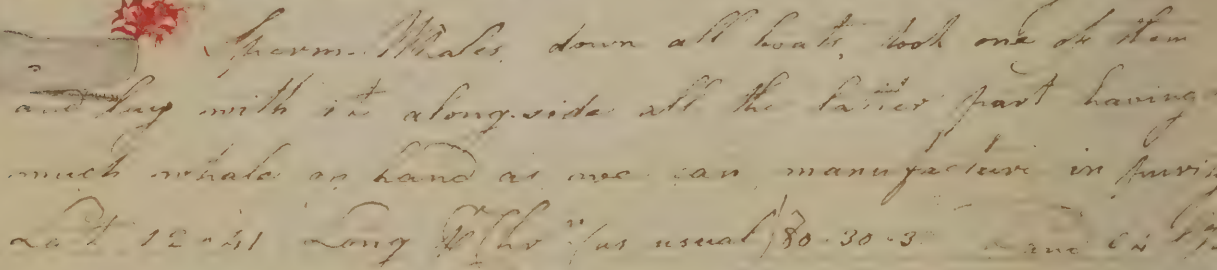 Sperm Whales, down all boats, took one of them
and lay with it alongside all the latter part having
much whale on hand as we can manufacture in
Lat 12-41 Long Chr "as usual) 80-30-3